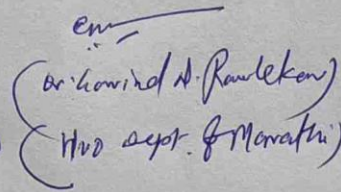 (Dr. Govind D. Rawlekar)
(HOD Dept. of Marathi)